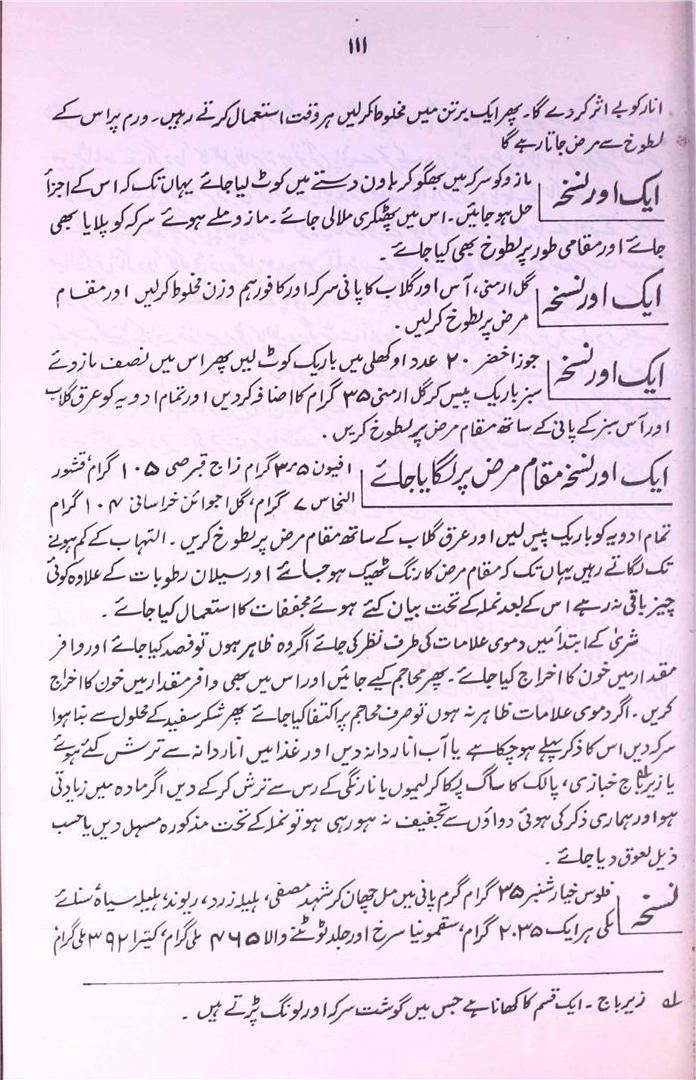 ۱۱۱
انار کو بے اثر کر دے گا۔ پھر ایک برتن میں مخلوط کرلیں ہر وقت استعمال کرتے رہیں۔ ورم پر اس کے
لطوخ سے مرض جاتا رہے گا
ایک اور نسخہ مازو کو سرکہ میں بھگو کر ہاون دستے میں کوٹ لیا جائے یہاں تک کہ اس کے اجزأ
حل ہو جائیں۔ اس میں پھٹکری ملالی جائے۔ مازو ملے ہوئے سرکہ کو پلایا بھی
جائے اور مقامی طور پر لطوخ بھی کیا جائے۔
ایک اور نسخہ گل ارمنی، آس اور گلاب کا پانی سرکہ اور کافور ہم وزن مخلوط کرلیں اور مقام
مرض پر لطوخ کرلیں۔
ایک اور نسخہ جوز اخضر ۲۰ عدد اوکھلی میں باریک کوٹ لیں پھر اس میں نصف مازوئے
سبز باریک پیس کر گل ارمنی ۳۵ گرام کا اضافہ کردیں اور تمام ادویہ کو عرق گلاب
اور آس سبز کے پانی کے ساتھ مقام مرض پر لطوخ کریں۔
ایک اور نسخہ مقام مرض پر لگایا جائے افیون ۳٫۵ گرام زاج قبرصی ۱۰۵ گرام، قشور
النحاس ۷ گرام، گل اجوائن خراسانی ۱۰۴ گرام
تمام ادویہ کو باریک پیس لیں اور عرق گلاب کے ساتھ مقام مرض پر لطوخ کریں۔ التہاب کے کم ہونے
تک لگاتے رہیں یہاں تک کہ مقام مرض کا رنگ ٹھیک ہو جائے اور سیلان رطوبات کے علاوہ کوئی
چیز باقی نہ رہے اس کے بعد نملہ کے تحت بیان کئے ہوئے مجففات کا استعمال کیا جائے۔
شریٰ کے ابتدأ میں دموی علامات کی طرف نظر کی جائے اگر وہ ظاہر ہوں تو فصد کیا جائے اور وافر
مقدار میں خون کا اخراج کیا جائے۔ پھر محاجم کیے جائیں اور اس میں بھی وافر مقدار میں خون کا اخراج
کریں۔ اگر دموی علامات ظاہر نہ ہوں تو صرف محاجم پر اکتفا کیا جائے پھر شکر سفید کے محلول سے بنا ہوا
سرکہ دیں اس کا ذکر پہلے ہو چکا ہے یا آب انار دانہ دیں اور غذا میں انار دانہ سے ترش کئے ہوئے
یا زیرباج خبازی، پالک کا ساگ پکا کر لیموں یا نارنگی کے رس سے ترش کر کے دیں اگر مادہ میں زیادتی
ہو اور ہماری ذکر کی ہوئی دواؤں سے تخفیف نہ ہو رہی ہو تو نملہ کے تحت مذکورہ مسہل دیں یا حسب
ذیل لعوق دیا جائے۔
نسخہ فلوس خیار شنبر ۳۵ گرام گرم پانی میں مل چھان کر شہد مصفی، ہلیلہ زرد، ریوند، ہلیلہ سیاہ سنائے
مکی ہر ایک ۲.۳۵ گرام، سقمونیا سرخ اور جلد ٹوٹنے والا ۴۶۵ ملی گرام، کتیرا ۳۹۲ ملی گرام
لے زیرباج ۔ ایک قسم کا کھانا ہے جس میں گوشت سرکہ اور لونگ پڑتے ہیں۔